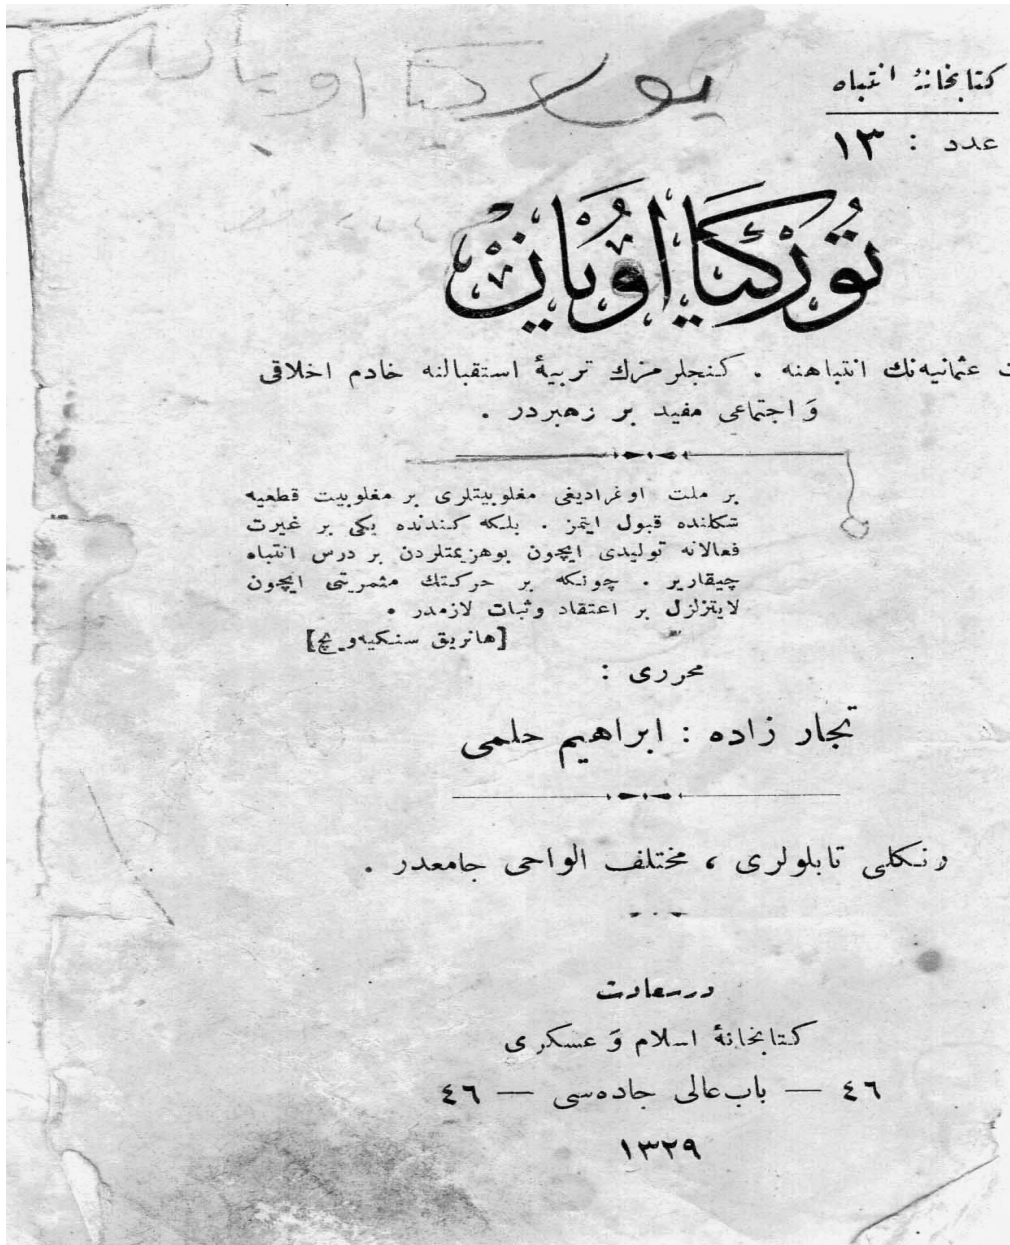 كتابخانهٔ انتباه
عدد : ١٣
توركيا اويان
توركيا اويان
عثمانيه‌نك انتباهنه . كنجلرمزك تربيهٔ استقبالنه خادم اخلاقى
وَ اجتماعى مفيد بر رهبردر .
بر ملت اوغراديغى مغلوبيتلرى بر مغلوبيت قطعيه
شكلنده قبول ايتمز . بلكه كندنده يكى بر غيرت
فعالانه توليدى ايچون بوهزيمتلردن بر درس انتباه
چيقارير . چونكه بر حركتك مثمريتى ايچون
لايتزلزل بر اعتقاد وثبات لازمدر .
[هانريق سنكيه‌ويچ]
محررى :
تجار زاده : ابراهيم حلمى
رنكلى تابلولرى ، مختلف الواحى جامعدر .
درسعادت
كتابخانهٔ اسلام وَ عسكرى
٤٦ — باب‌عالى جاده‌سى — ٤٦
١٣٢٩